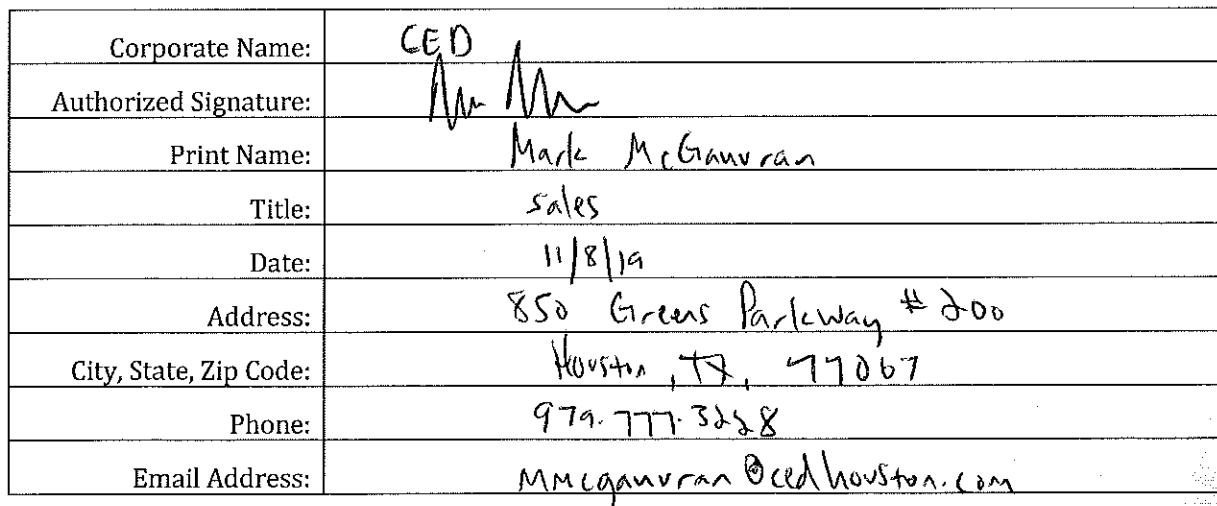 Corporate Name: CED
Authorized Signature:
Print Name: Mark McGauvran
Title: sales
Date: 11/8/19
Address: 850 Greens Parkway # 200
City, State, Zip Code: Houston, TX, 77067
Phone: 979.777.3228
Email Address: MMcgauvran@cedhouston.com